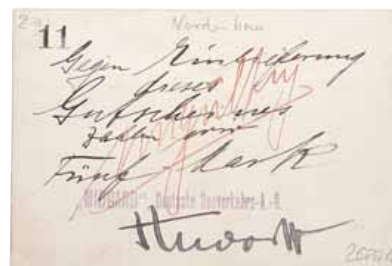 Nordenham
11
Gegen Einlieferung
dieses
Gutscheines
zahlen wir
Fünf Mark
"MIDGARD" Deutsche Seeverkehrs-A.-G.